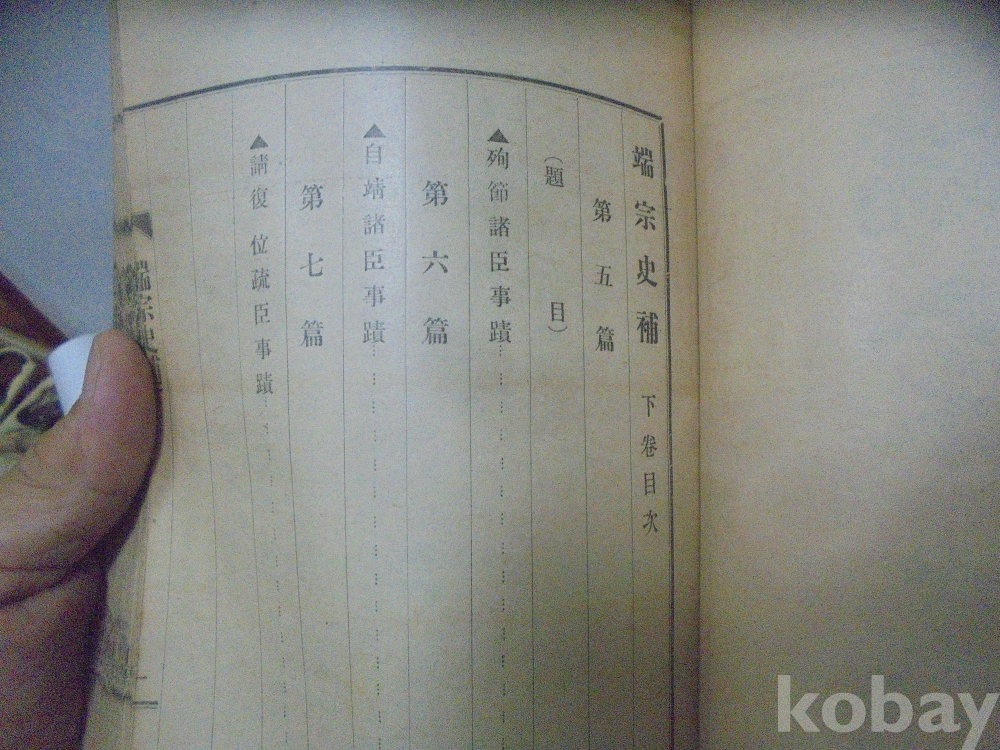 端宗史補 下卷目次
第五篇
(題目)
▲殉節諸臣事蹟………………………
第六篇
▲自靖諸臣事蹟………………………
第七篇
▲請復 位疏臣事蹟………………………
端宗史補
一
kobay